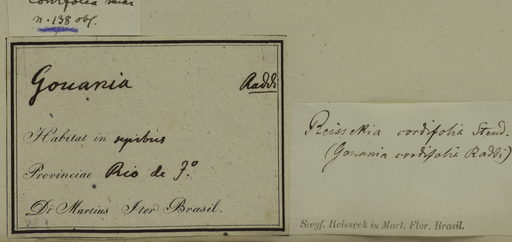 cordifolia mihi
n. 138 obs.
Gouania Raddi
Habitat in sepibus
Provinciae Rio de J.º
Dr. Martius Iter Brasil.
Reissekia cordifolia Steud.
(Gouania cordifolia Raddi)
Siegf. Reisseck in Mart. Flor. Brasil.